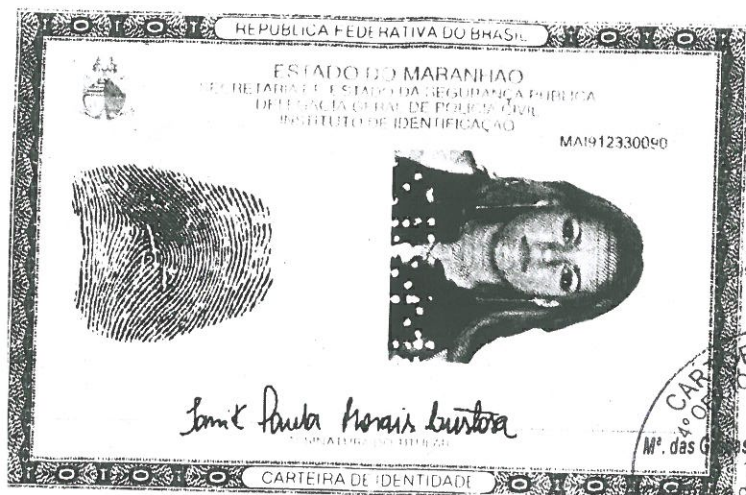 REPÚBLICA FEDERATIVA DO BRASIL
ESTADO DO MARANHÃO
SECRETARIA DE ESTADO DA SEGURANÇA PÚBLICA
DELEGACIA GERAL DE POLÍCIA CIVIL
INSTITUTO DE IDENTIFICAÇÃO
MAI912330090
Paula Morais
ASSINATURA DO TITULAR
CARTEIRA DE IDENTIDADE
CAR
4º OF
Mª. das G